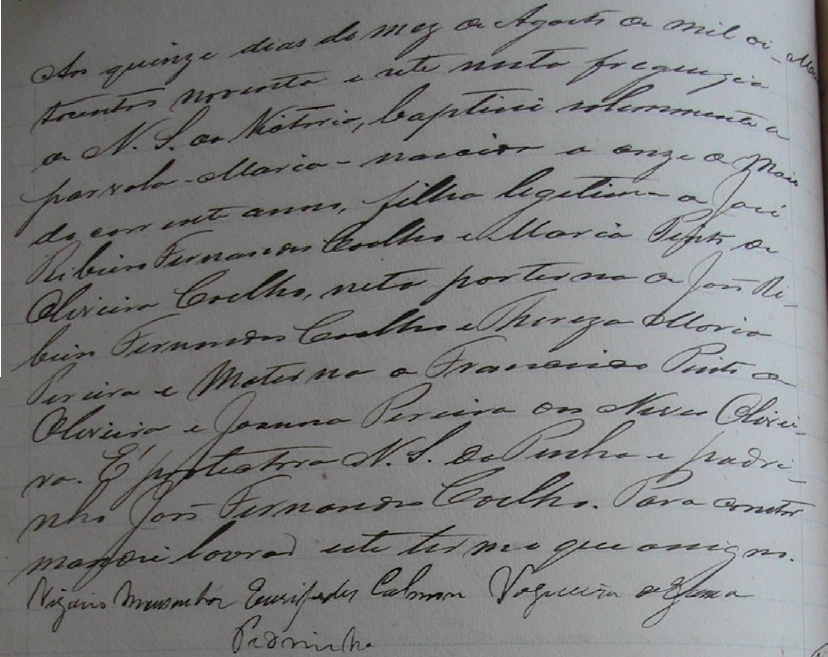 Aos quinze dias do mez de Agosto de mil oi-
tocentos noventa e sete nesta freguezia
de N. S. da Victoria, baptisei solemnemente a
parvola Maria - nascida a onze de Maio
do corrente anno, filha legitima de José
Ribeiro Fernandes Coelho e Maria Pinto de
Oliveira Coelho, neta paterna de José Ri-
beiro Fernandes Coelho e Thereza Maria
Pereira e Materna de Francisco Pinto de
Oliveira e Joanna Pereira das Neves Olivei-
ra. É protectora N. S. da Penha e padri-
nho José Fernandes Coelho. Para constar
mandei lavrar este termo que assigno.
Vigario Monsenhor Euripedes Calmon Nogueira da Gama
Pedrinha